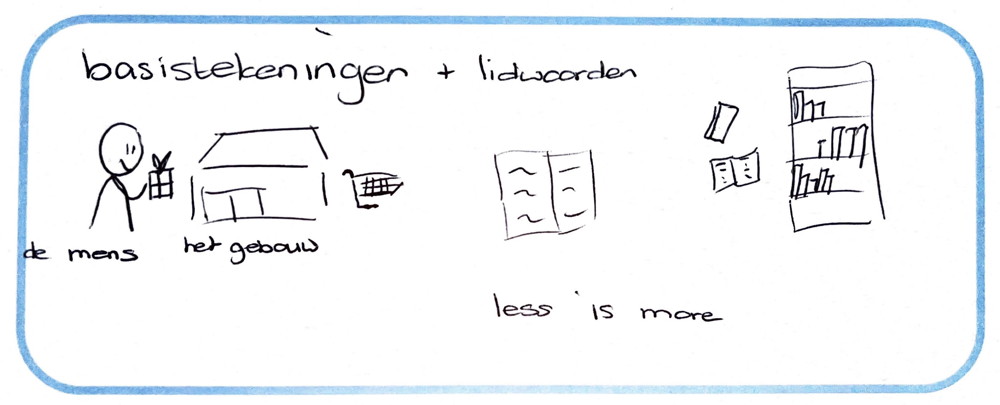 basistekeningen + lidwoorden
de mens
het gebouw
less is more